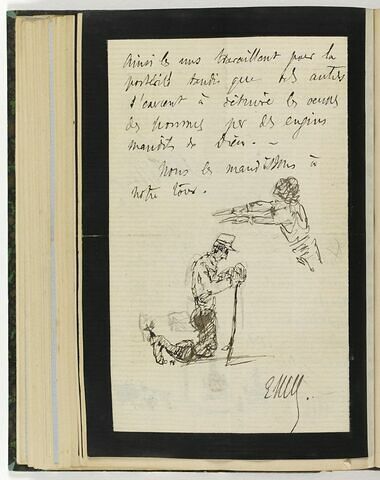 Ainsi les uns travaillent pour la
postérité tandis que les autres
s'exercent à détruire les oeuvres
des hommes par des engins
maudits de Dieu. –
Nous les maudissons à
notre tour.